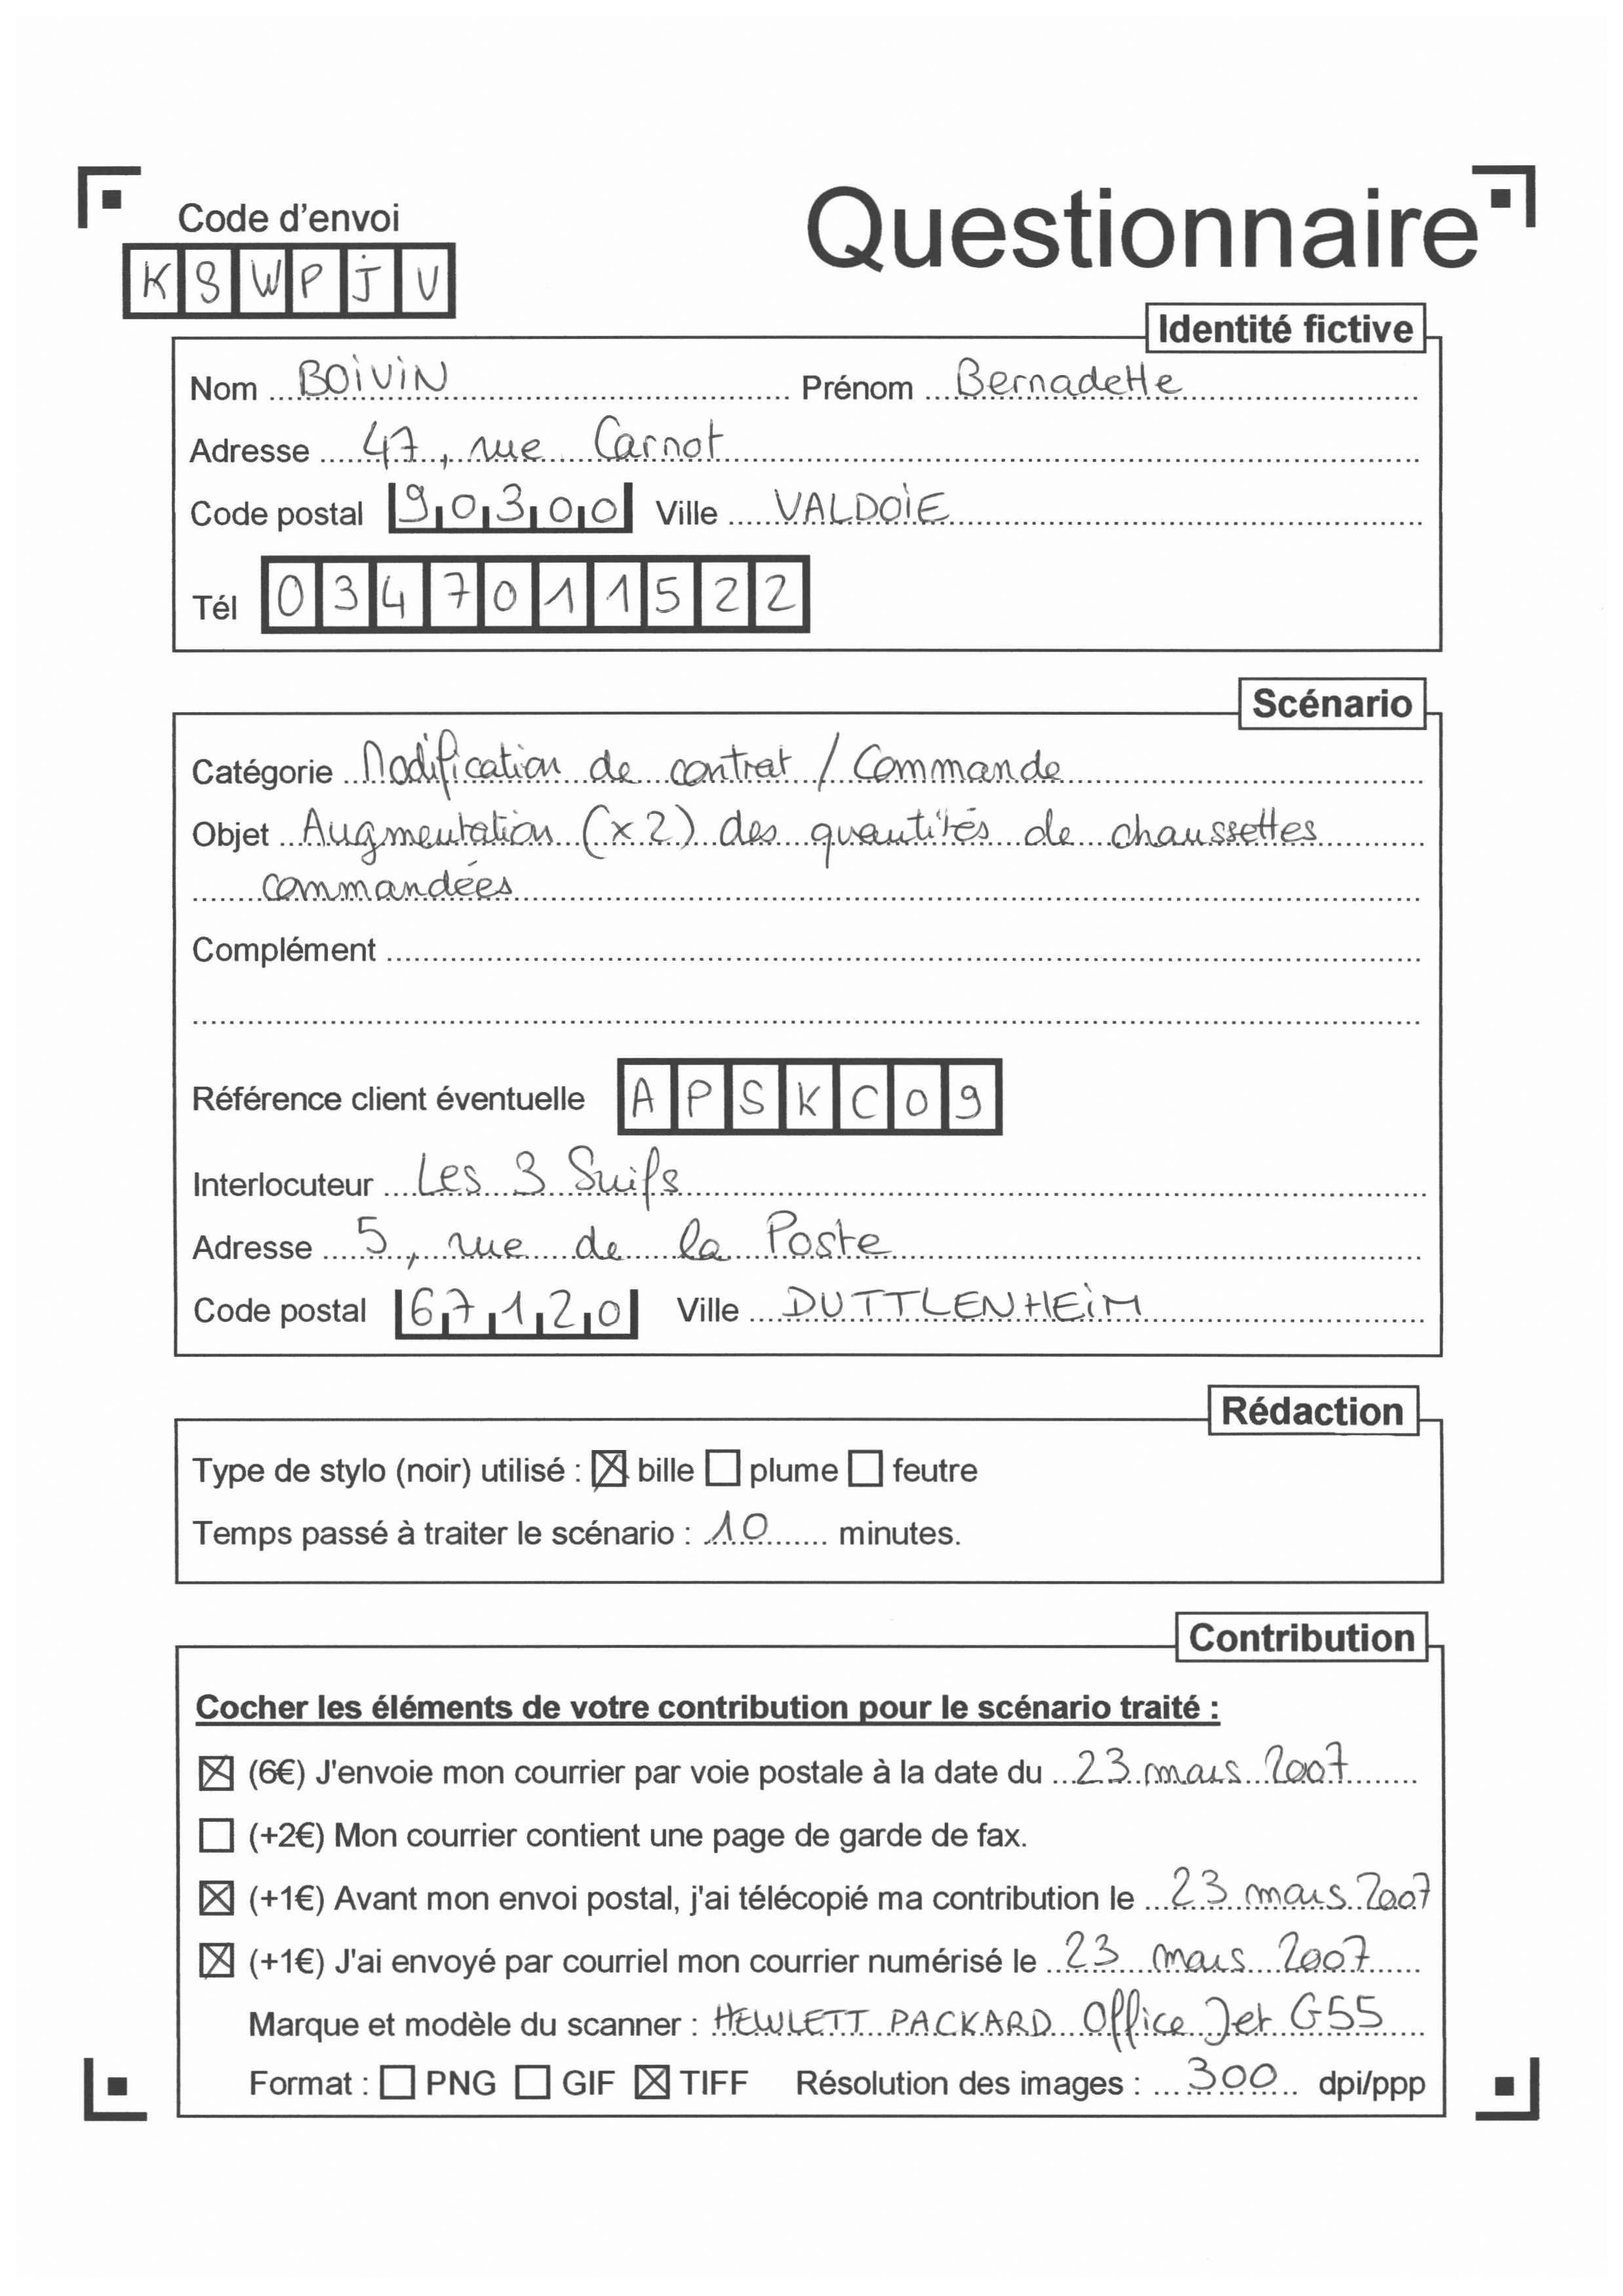 Code d'envoi
Questionnaire
K S W P J V
Identité fictive
Nom BOIVIN Prénom Bernadette
Adresse 47, rue Carnot
Code postal 90300 Ville VALDOIE
Tél 0347011522
Scénario
Catégorie Modification de contrat / Commande
Objet Augmentation (x2) des quantités de chaussettes
commandées
Complément
Référence client éventuelle APSKC09
Interlocuteur Les 3 Suifs
Adresse 5, rue de la Poste
Code postal 67120 Ville DUTTLENHEIM
Rédaction
Type de stylo (noir) utilisé : ☒ bille ☐ plume ☐ feutre
Temps passé à traiter le scénario : 10 minutes.
Contribution
Cocher les éléments de votre contribution pour le scénario traité :
☒ (6€) J'envoie mon courrier par voie postale à la date du 23 mars 2007
☐ (+2€) Mon courrier contient une page de garde de fax.
☒ (+1€) Avant mon envoi postal, j'ai télécopié ma contribution le 23 mars 2007
☒ (+1€) J'ai envoyé par courriel mon courrier numérisé le 23 mars 2007
Marque et modèle du scanner : HEWLETT PACKARD Office Jet G55
Format : ☐ PNG ☐ GIF ☒ TIFF Résolution des images : 300 dpi/ppp